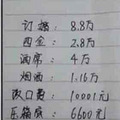 订婚: 8.8万
四金: 2.8万
酒席: 4万
烟酒: 1.16万
改口费: 10001元
压箱底: 6600元